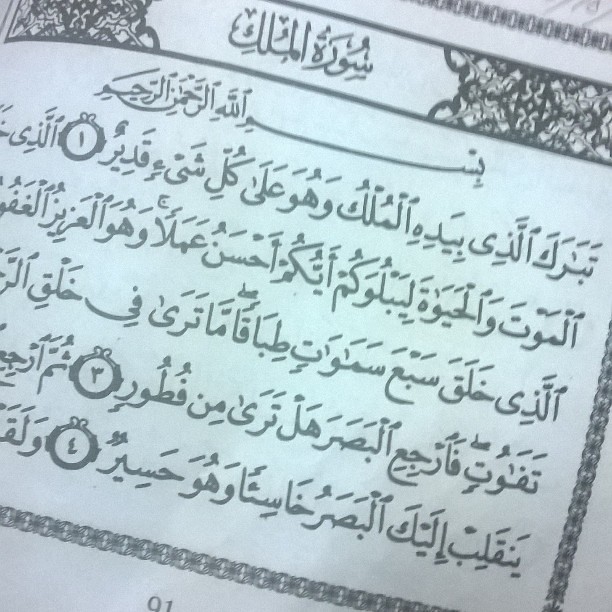 سُورَةُ الْمُلْكِ
بِسْمِ ٱللَّهِ ٱلرَّحْمَٰنِ ٱلرَّحِيمِ
تَبَٰرَكَ ٱلَّذِى بِيَدِهِ ٱلْمُلْكُ وَهُوَ عَلَىٰ كُلِّ شَىْءٍ قَدِيرٌ ١ ٱلَّذِى
ٱلْمَوْتَ وَٱلْحَيَوٰةَ لِيَبْلُوَكُمْ أَيُّكُمْ أَحْسَنُ عَمَلًا ۚ وَهُوَ ٱلْعَزِيزُ
ٱلَّذِى خَلَقَ سَبْعَ سَمَٰوَٰتٍ طِبَاقًا ۖ مَّا تَرَىٰ فِى خَلْقِ
تَفَٰوُتٍ ۖ فَٱرْجِعِ ٱلْبَصَرَ هَلْ تَرَىٰ مِن فُطُورٍ ٣ ثُمَّ ٱرْجِعِ
يَنقَلِبْ إِلَيْكَ ٱلْبَصَرُ خَاسِئًا وَهُوَ حَسِيرٌ ٤ وَلَقَ
91